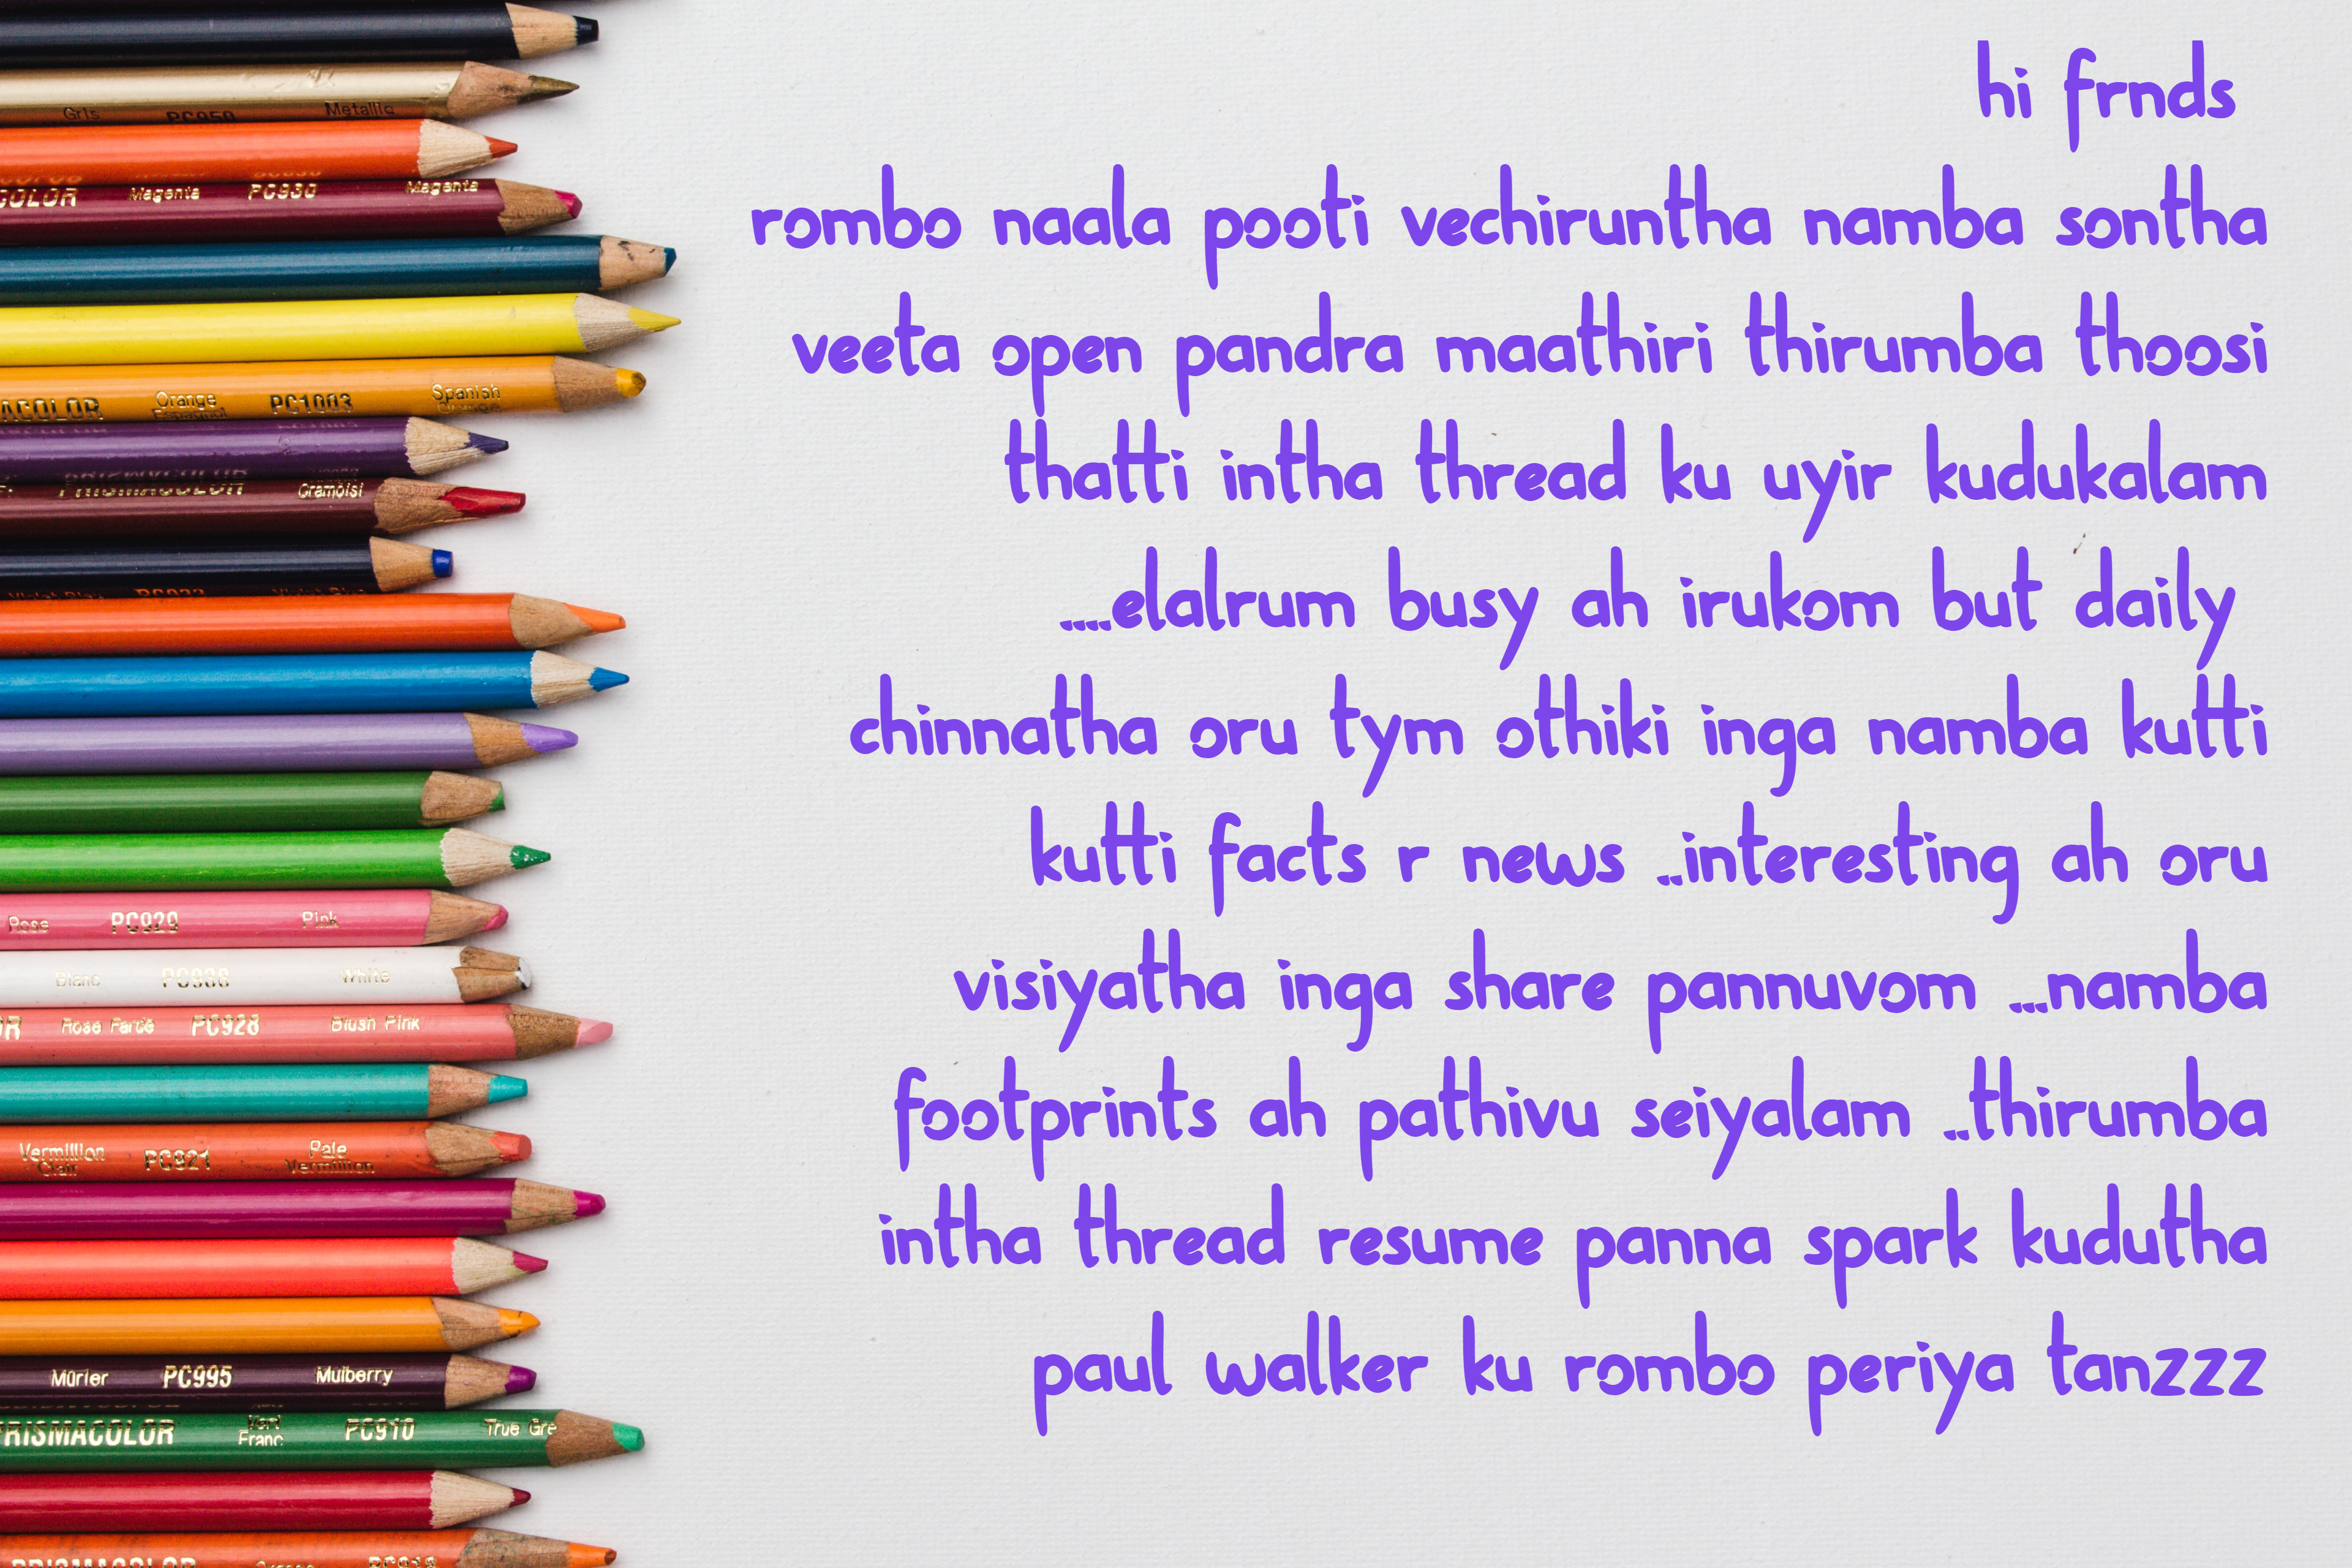 hi frnds
rombo naala pooti vechiruntha namba sontha
veeta open pandra maathiri thirumba thoosi
thatti intha thread ku uyir kudukalam
....elalrum busy ah irukom but daily
chinnatha oru tym othiki inga namba kutti
kutti facts r news ..interesting ah oru
visiyatha inga share pannuvom ...namba
footprints ah pathivu seiyalam ..thirumba
intha thread resume panna spark kudutha
paul walker ku rombo periya tanzzz
Gris PC950 Metallic
COLOR Magenta PC930 Magenta
ACOLOR Orange Espagnol PC1003 Spanish Orange
PRISMACOLOR Cramoisi
Rose PC929 Pink
Blanc PC938 White
Rose Farde PC928 Blush Pink
Vermillion Clair PC921 Pale Vermillion
Mûrier PC995 Mulberry
PRISMACOLOR Vert Franc PC910 True Gre
PRISMACOLOR